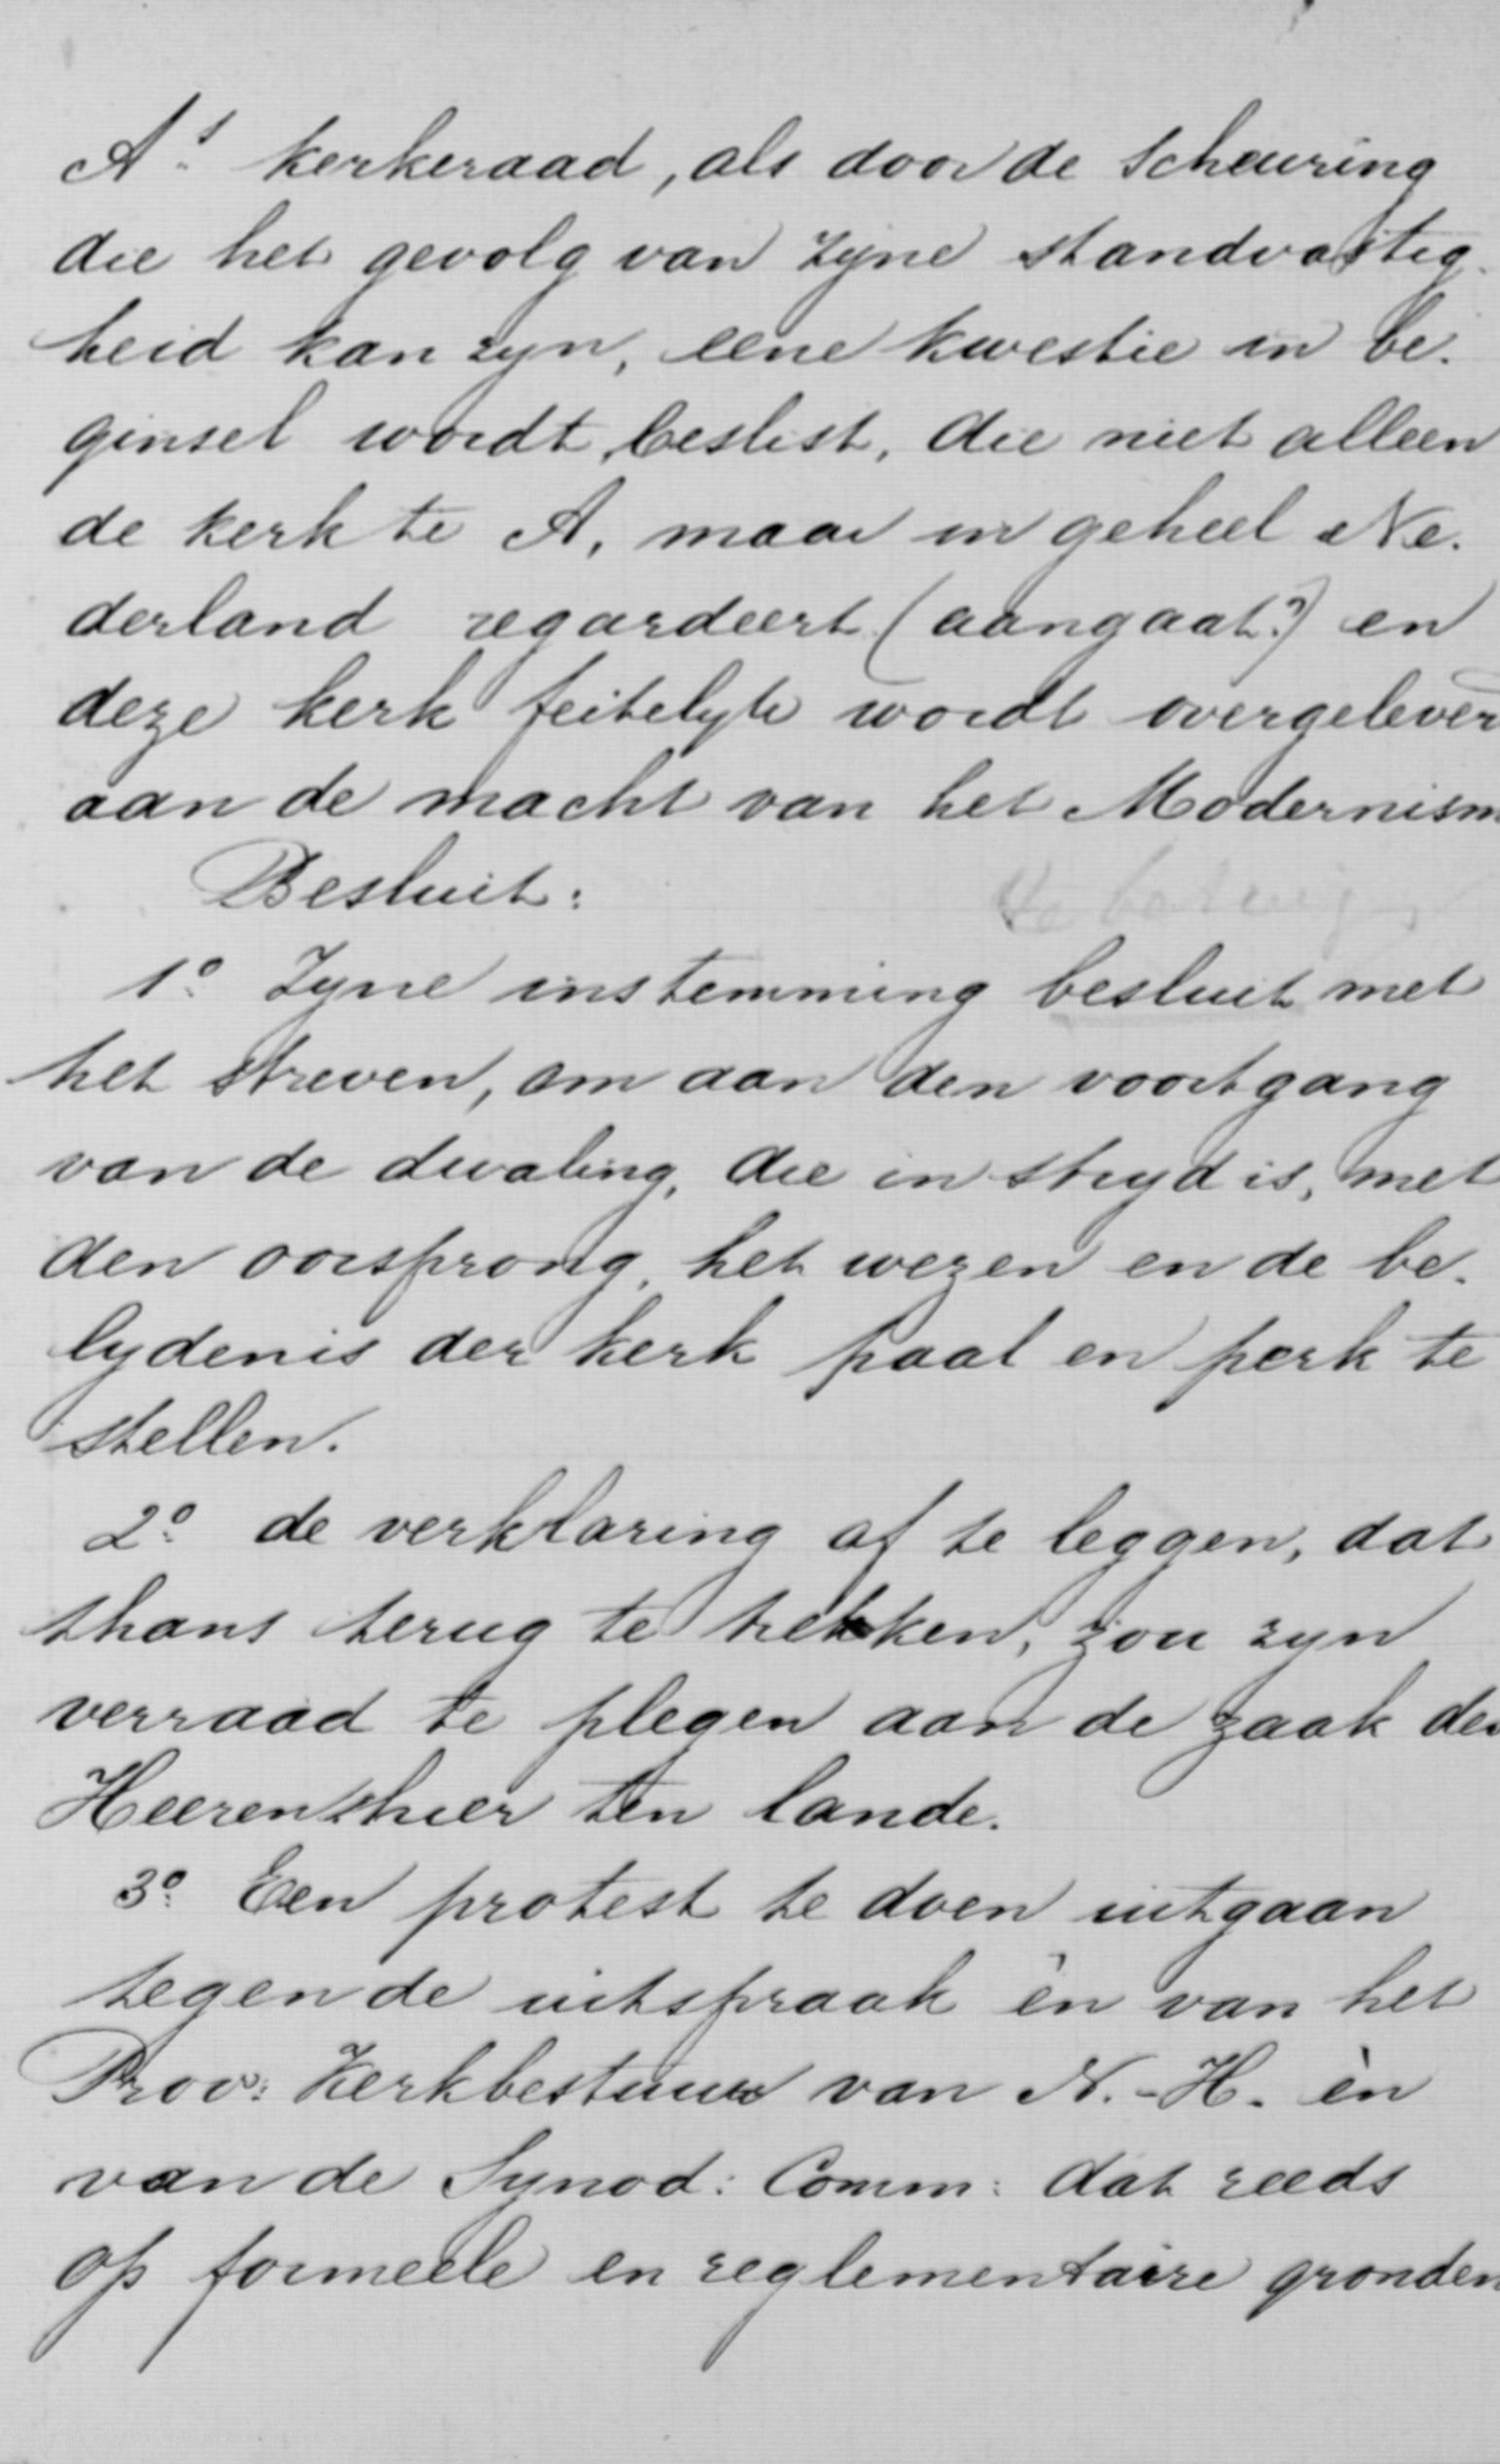 A's kerkeraad, als door de scheuring
die het gevolg van zyne standvastig-
heid kan zyn, eene kwestie in be-
ginsel wordt beslist, die niet alleen
de kerk te A, maar in geheel Ne-
derland regardeert (aangaat?) en
deze kerk feitelyk wordt overgelever
aan de macht van het Modernism
Besluit:
te betuigen
1º Zyne instemming besluit met
het streven, om aan den voortgang
van de dwaling, die in stryd is, met
den oorsprong, het wezen en de be-
lydenis der kerk paal en perk te
stellen.
2º de verklaring af te leggen, dat
thans terug te trekken, zou zyn
verraad te plegen aan de zaak des
Heeren hier ten lande.
3º Een protest te doen uitgaan
tegen de uitspraak èn van het
Prov: Kerkbestuur van N.-H. èn
van de Synod: Comm: dat reeds
op formeele en reglementaire gronden